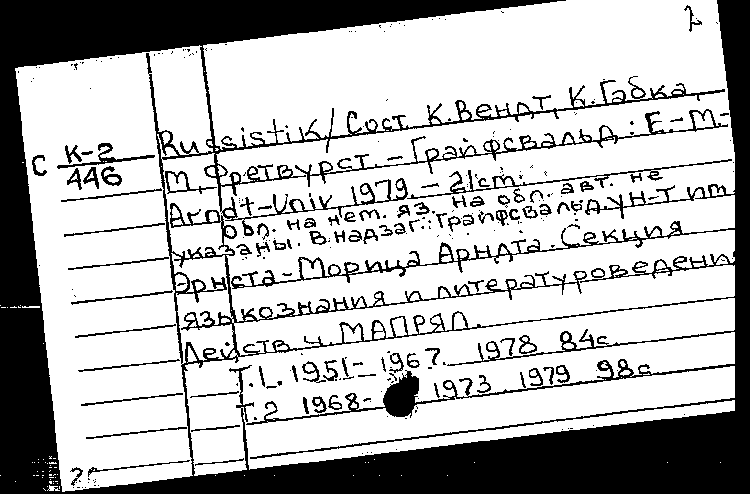 2
Russistik/Сост. К.Вендт, К.Габка,
С К-2
446
М. Фретвурст. – Грайфсвальд: E.-M.-
Arndt-Univ, 1979. – 2/cm.
Обл. на нем. яз. На обл. авт. не
указаны. В надзаг.: Грайфсвальд. ун-т им.
Эрнста-Морица Арндта. Секция
языкознания и литературоведения
Действ ч. МАПРЯЛ.
Т.1. 1951- 1967. 1978 84с.
Т.2 1968- 1973. 1979 98с